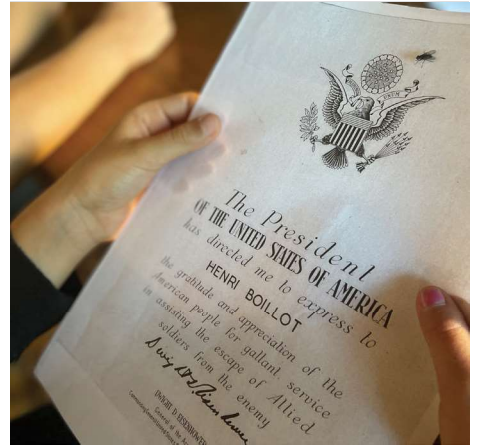 The President
OF THE UNITED STATES OF AMERICA
has directed me to express to
HENRI BOILLOT
the gratitude and appreciation of the
American people for gallant service
in assisting the escape of Allied
soldiers from the enemy
Dwight D Eisenhower
DWIGHT D. EISENHOWER
General of the
Commanding General